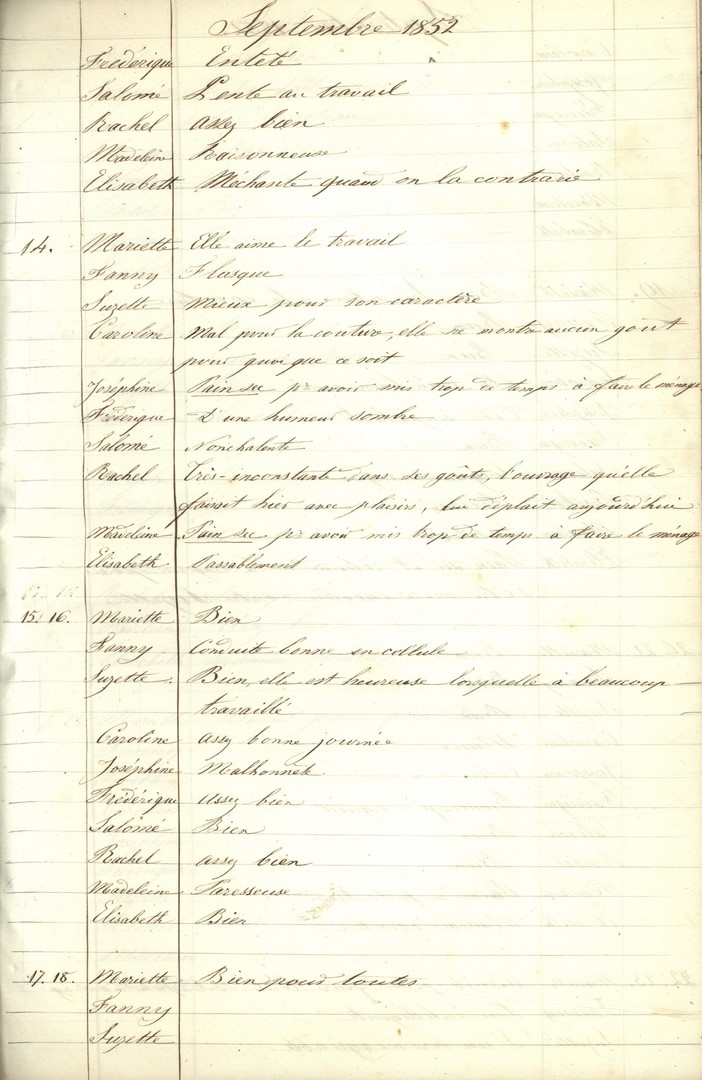 Septembre 1852
Frédérique Enteté
Salomé Lente au travail
Rachel assez bien
Madeleine Raisonneuse
Elisabeth Méchante quand on la contrarie
14. Mariette Elle aime le travail
Fanny Flasque
Suzette Mieux pour son caractère
Caroline Mal pour la couture, elle ne montre aucun goût
pour quoi que ce soit
Joséphine Pain sec pr avoir mis trop de temps à faire le ménage
Frédérique D'une humeur sombre
Salomé Nonchalente
Rachel Très-inconstante dans ses goûts, l'ouvrage qu'elle
faisait hier avec plaisirs, lui déplait aujourd'hui
Madeleine Pain sec pr avoir mis trop de temps à faire le ménage
Elisabeth Passablement
15. 16. Mariette Bien
Fanny Conduite bonne en cellule
Suzette Bien, elle est heureuse lorsquelle à beaucoup
travaillé
Caroline assez bonne journée
Joséphine Malhonnête
Frédérique assez bien
Salomé Bien
Rachel assez bien
Madeleine Paresseuse
Elisabeth Bien
17. 18. Mariette Bien pour toutes
Fanny
Suzette